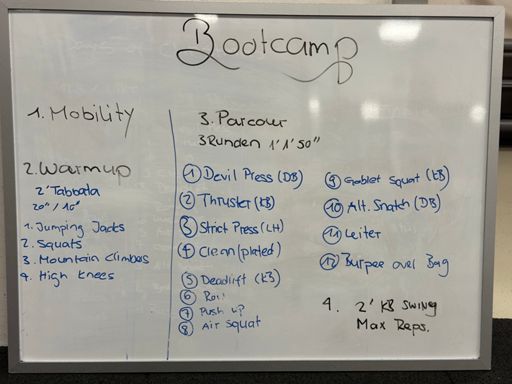 Bootcamp
1. Mobility
2. Warmup
2' Tabbata
20"/10"
1. Jumping Jacks
2. Squats
3. Mountain Climbers
4. High Knees
3. Parcour
3 Runden 1' 1' 50"
1 Devil Press (DB)
2 Thruster (KB)
3 Strict Press (LH)
4 Clean (plated)
5 Deadlift (KB)
6
7 Push up
8 Air Squat
9 Goblet Squat (KB)
10 Alt. Snatch (DB)
11 Leiter
12 Burpee over Bag
4. 2' KB Swing
Max Reps.